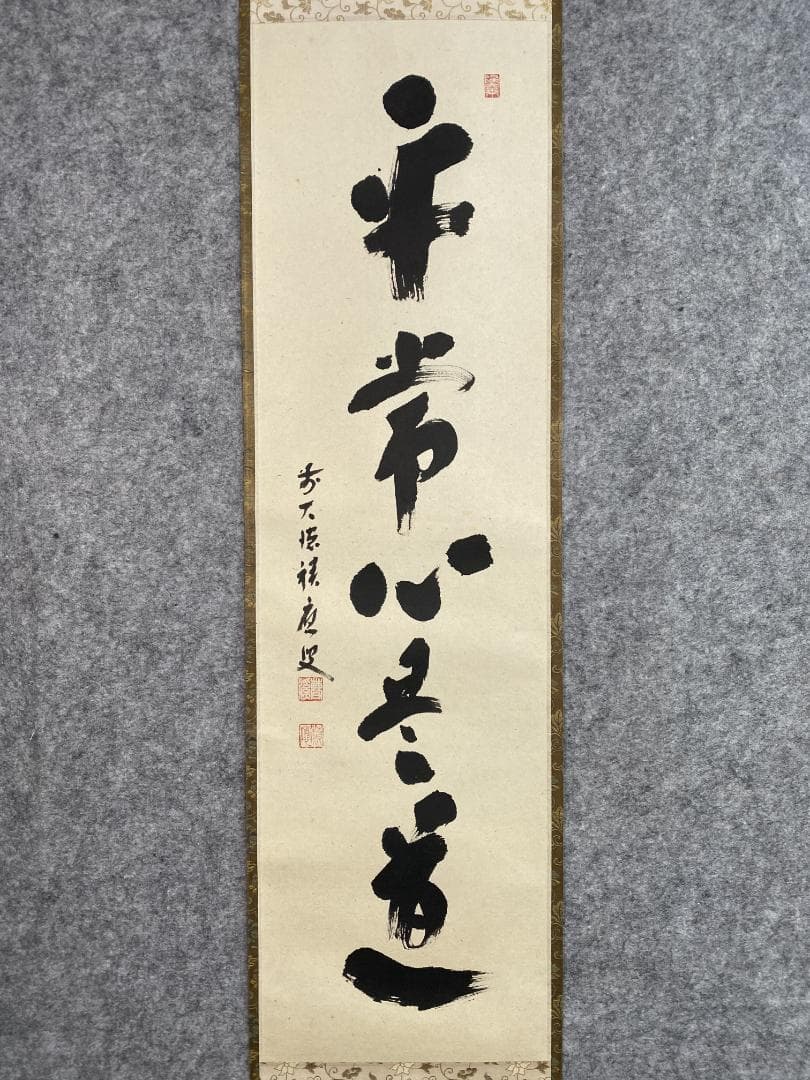 平常心是道
前大徳積應叟